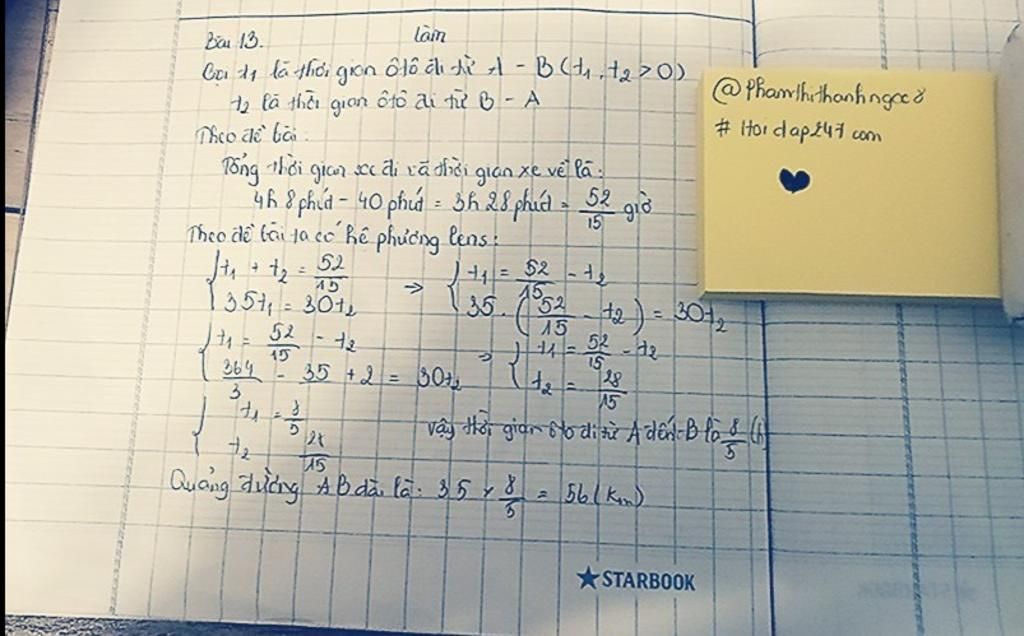 Bài 13. làm
Gọi t1 là thời gian ôtô đi từ A - B (t1, t2 > 0)
t2 là thời gian ôtô đi từ B - A
Theo đề bài:
Tổng thời gian xe đi và thời gian xe về là:
4h 8 phút - 40 phút = 3h 28 phút = 52/15 giờ
Theo đề bài ta có hệ phương lens:
{ t1 + t2 = 52/15 → { t1 = 52/15 - t2
35t1 = 30t2 35. (52/15 - t2) = 30t2
{ t1 = 52/15 - t2 → { t1 = 52/15 - t2
364/3 - 35 +2 = 30t2 t2 = 28/15
{ t1 = 8/5
t2 28/15
vậy thời gian ôto đi từ A đến B là 8/5 (h)
Quảng đường AB dài là: 35 x 8/5 = 56 (km)
@phamthithanhngoc8
# Hoidap247 com
★STARBOOK